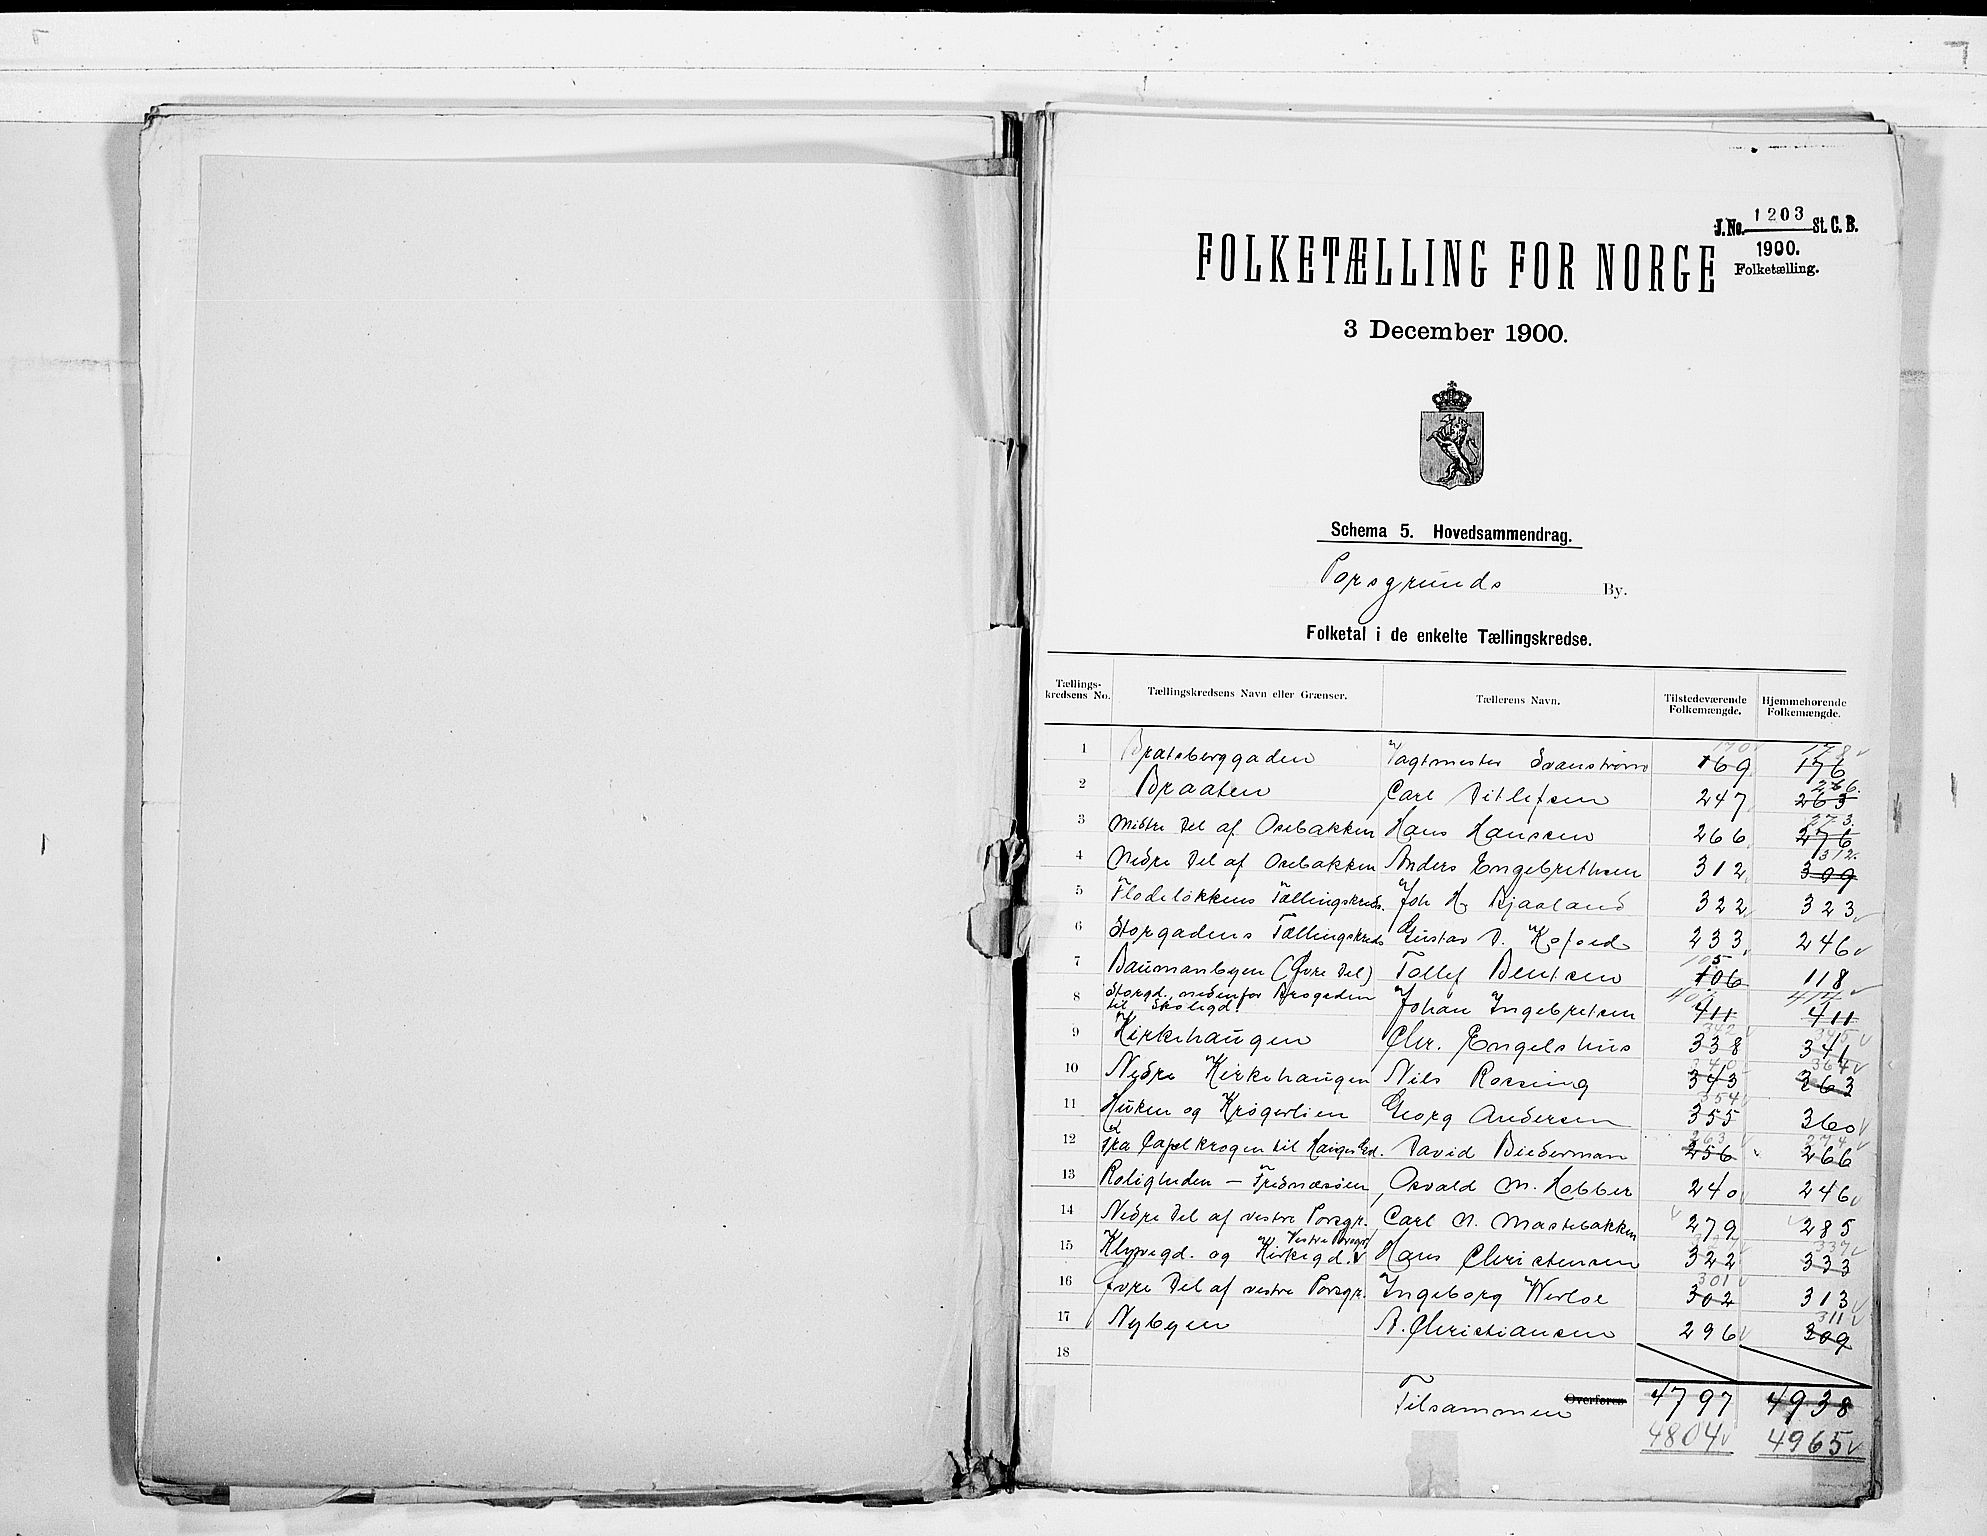 J. No. 1203 St. C. B.
1900.
Folketælling.
FOLKETÆLLING FOR NORGE
3 December 1900.
Schema 5. Hovedsammendrag.
Porsgrunds By.
Folketal i de enkelte Tællingskredse.
Tællings-kredsens No. Tællingskredsens Navn eller Grænser. Tællerens Navn. Tilstedeværende Folkemængde. Hjemmehørende Folkemængde.
170 178
1 Bratsberggaden Vagtmester Svanstrøm 169 176
266.
2 Braaten Carl Ditlefsen 247 263
273.
3 Midtre Del af Osebakken Hans Hansen 266 276
312.
4 Nedre Del af Osebakken Anders Engebrethsen 312 309
5 Flodeløkkens Tællingskreds. Joh H. 322 323
6 Storgadens Tællingskreds Gustav D. Kofoed 233 246
105
7 Baumanbyen (Øvre Del) Tollef Bentsen 106 118
414
8 Storgd. nedenfor Krogaden til Skoligd. Johan Ingebretsen 411 411
342 345
9 Kirkehaugen Chr. Engelshus 338 341
340 364
10 Nedre Kirkehaugen Nils Rossing 343 363
354
11 Huken og Krøgerlien Georg Andersen 355 360
263 274
12 Fra Capelkrogen til Hauges Gd. David Biederman 256 266
13 Roligheden — Frednæsøen Osvald M. Hobber 240 246
14 Nedre Del af vestre Porsgr. Carl N. Mastebakken 279 285
Vestre Porsgr. 337
15 Klyvegd. og Kirkegd. Hans Christensen 322 333
301
16 Øvre Del af vestre Porsgr. Ingeborg Werloe 302 313
311
17 Nybyen A. Christiansen 296 309
18
Tilsammen Overføres 4797 4938
4804 4965